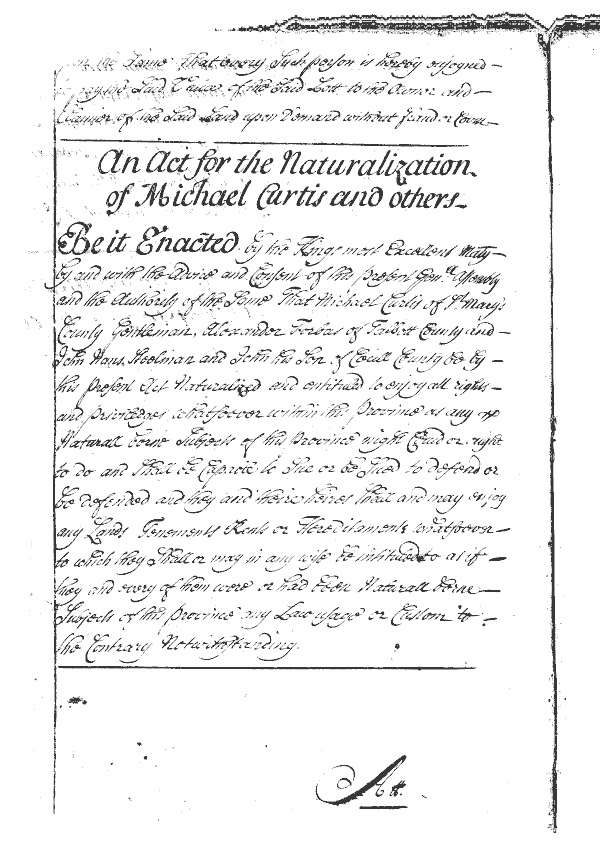 the Same That every Such person is hereby enjoyned
to pay the Said Value of the Said Lott to the Owner and
Claimer of the Said Land upon Demand without fraud or Covin
An Act for the Naturalization
of Michael Curtis and others
Be it Enacted by the Kings most Excellent Maty
by and with the Advice and Consent of this present Gen.ll Assembly
and the Authority of the Same That Michael Curtis of St Mary's
County Gentleman, Alexander Forbas of Talbott County and
John Hans Steelman and John his Son of Cecill County be by
this Present Act Naturalized and entituled to enjoy all rights
and priviledges whatsoever within this Province as any
Naturall borne Subjects of this Province might Could or ought
to do and Shall be Capable to Sue or be Sued to defend or
be defended and they and their heires Shall and may enjoy
any Lands Tenements Rents or Hereditaments whatsoever
to which they Shall or may in any wise be intituled to as if
they and every of them were or had been Naturall borne
Subjects of this Province any Law usage or Custom to
the Contrary Notwithstanding.